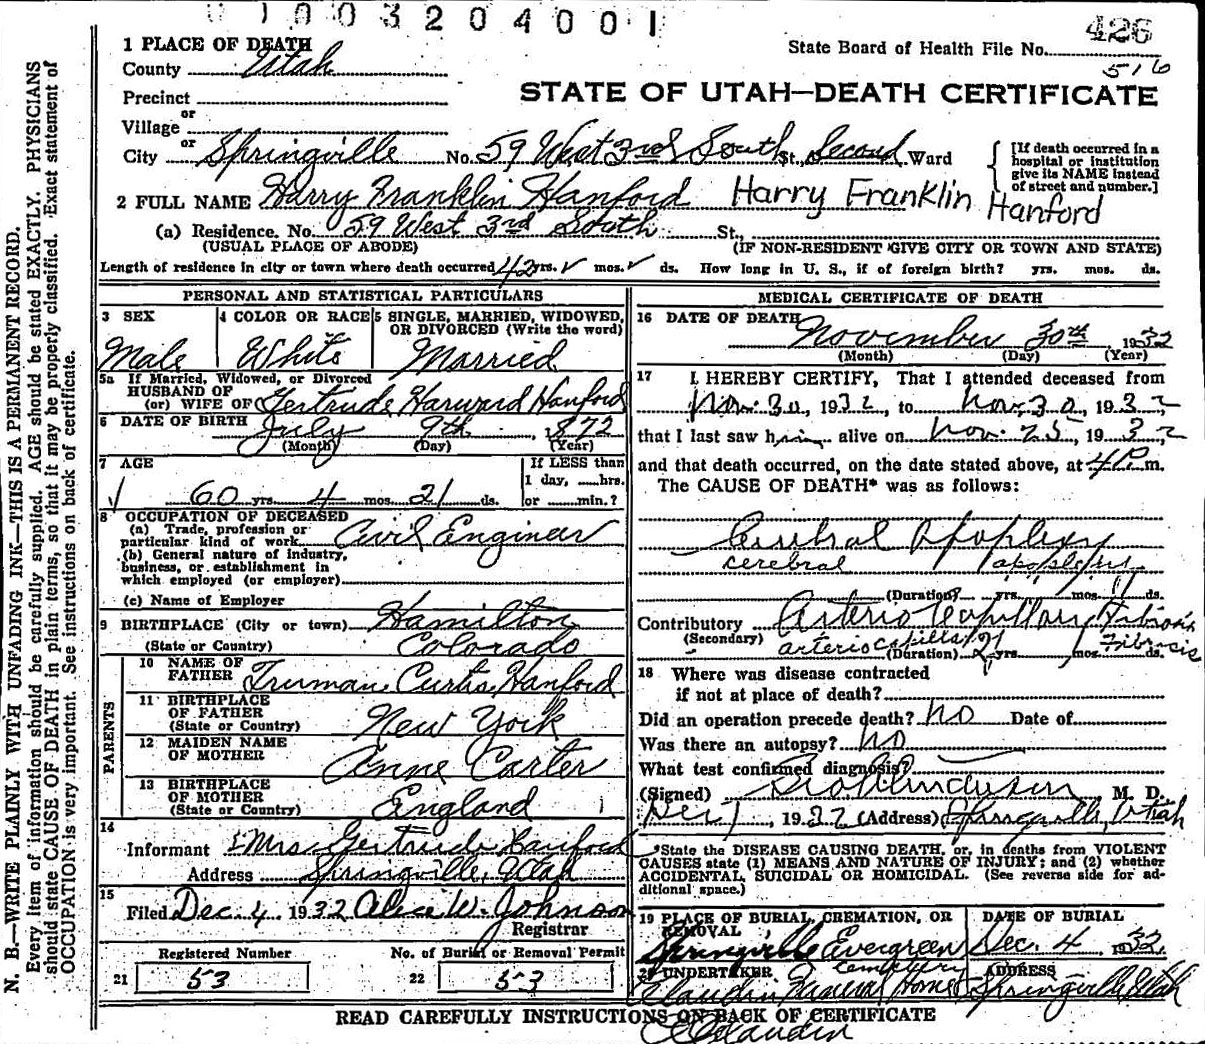 1003204001
426
1 PLACE OF DEATH
State Board of Health File No.
County Utah
516
Precinct
STATE OF UTAH—DEATH CERTIFICATE
or
Village
or
City Springville No. 59 West 3rd South St., Second Ward
[If death occurred in a
hospital or institution
give its NAME instead
of street and number.]
2 FULL NAME Harry Franklin Hanford Harry Franklin Hanford
(a) Residence. No. 59 West 3rd South St.,
(USUAL PLACE OF ABODE) (IF NON-RESIDENT GIVE CITY OR TOWN AND STATE)
Length of residence in city or town where death occurred 42 yrs. mos. ds. How long in U. S., if of foreign birth? yrs. mos. ds.
PERSONAL AND STATISTICAL PARTICULARS
3 SEX
Male
4 COLOR OR RACE
White
5 SINGLE, MARRIED, WIDOWED,
OR DIVORCED (Write the word)
Married
5a If Married, Widowed, or Divorced
HUSBAND OF
(or) WIFE OF Gertrude Harward Hanford
6 DATE OF BIRTH July 9th 1872
(Month) (Day) (Year)
7 AGE
60 yrs. 4 mos. 21 ds.
If LESS than
1 day, hrs.
or min.?
8 OCCUPATION OF DECEASED
(a) Trade, profession or
particular kind of work Civil Engineer
(b) General nature of industry,
business, or establishment in
which employed (or employer)
(c) Name of Employer
9 BIRTHPLACE (City or town) Hamilton
(State or Country) Colorado
PARENTS
10 NAME OF
FATHER Truman Curtis Hanford
11 BIRTHPLACE
OF FATHER
(State or Country) New York
12 MAIDEN NAME
OF MOTHER Anne Carter
13 BIRTHPLACE
OF MOTHER
(State or Country) England
14
Informant Mrs. Gertrude Hanford
Address Springville, Utah
15
Filed Dec. 4 1932 Alice W. Johnson
Registrar
Registered Number
21 53
No. of Burial or Removal Permit
22 53
MEDICAL CERTIFICATE OF DEATH
16 DATE OF DEATH
November 30th 1932
(Month) (Day) (Year)
17 I HEREBY CERTIFY, That I attended deceased from
Nov. 30, 1932, to Nov. 30, 1932
that I last saw him alive on Nov. 25, 1932
and that death occurred, on the date stated above, at 4 P m.
The CAUSE OF DEATH* was as follows:
Cerebral Apoplexy
cerebral apoplexy
(Duration) yrs. mos. ds.
Contributory Arterio Capillary Fibrosis
(Secondary) arteriocapillary Fibrosis
(Duration) 2 yrs. mos. ds.
18 Where was disease contracted
if not at place of death?
Did an operation precede death? no Date of
Was there an autopsy? no
What test confirmed diagnosis?
(Signed) M. D.
Dec 1, 1932 (Address) Springville, Utah
*State the DISEASE CAUSING DEATH, or, in deaths from VIOLENT
CAUSES state (1) MEANS AND NATURE OF INJURY; and (2) whether
ACCIDENTAL, SUICIDAL OR HOMICIDAL. (See reverse side for ad-
ditional space.)
19 PLACE OF BURIAL, CREMATION, OR
REMOVAL
Springville Evergreen
cemetery
DATE OF BURIAL
Dec. 4, 1932
20 UNDERTAKER
Claudin Funeral Home
ADDRESS
Springville, Utah
READ CAREFULLY INSTRUCTIONS ON BACK OF CERTIFICATE
Claudin
N. B.—WRITE PLAINLY WITH UNFADING INK—THIS IS A PERMANENT RECORD.
Every item of information should be carefully supplied. AGE should be stated EXACTLY. PHYSICIANS
should state CAUSE OF DEATH in plain terms, so that it may be properly classified. Exact statement of
OCCUPATION is very important. See instructions on back of certificate.